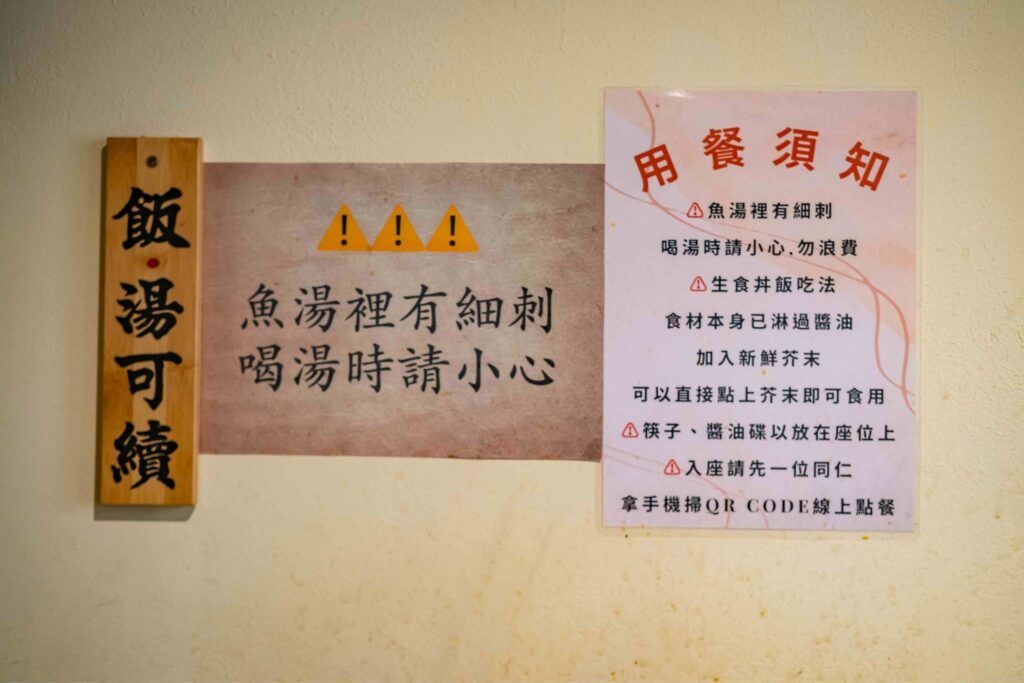 飯·湯可續
魚湯裡有細刺
喝湯時請小心
用餐須知
魚湯裡有細刺
喝湯時請小心,勿浪費
生食丼飯吃法
食材本身已淋過醬油
加入新鮮芥末
可以直接點上芥末即可食用
筷子、醬油碟以放在座位上
入座請先一位同仁
拿手機掃QR CODE線上點餐